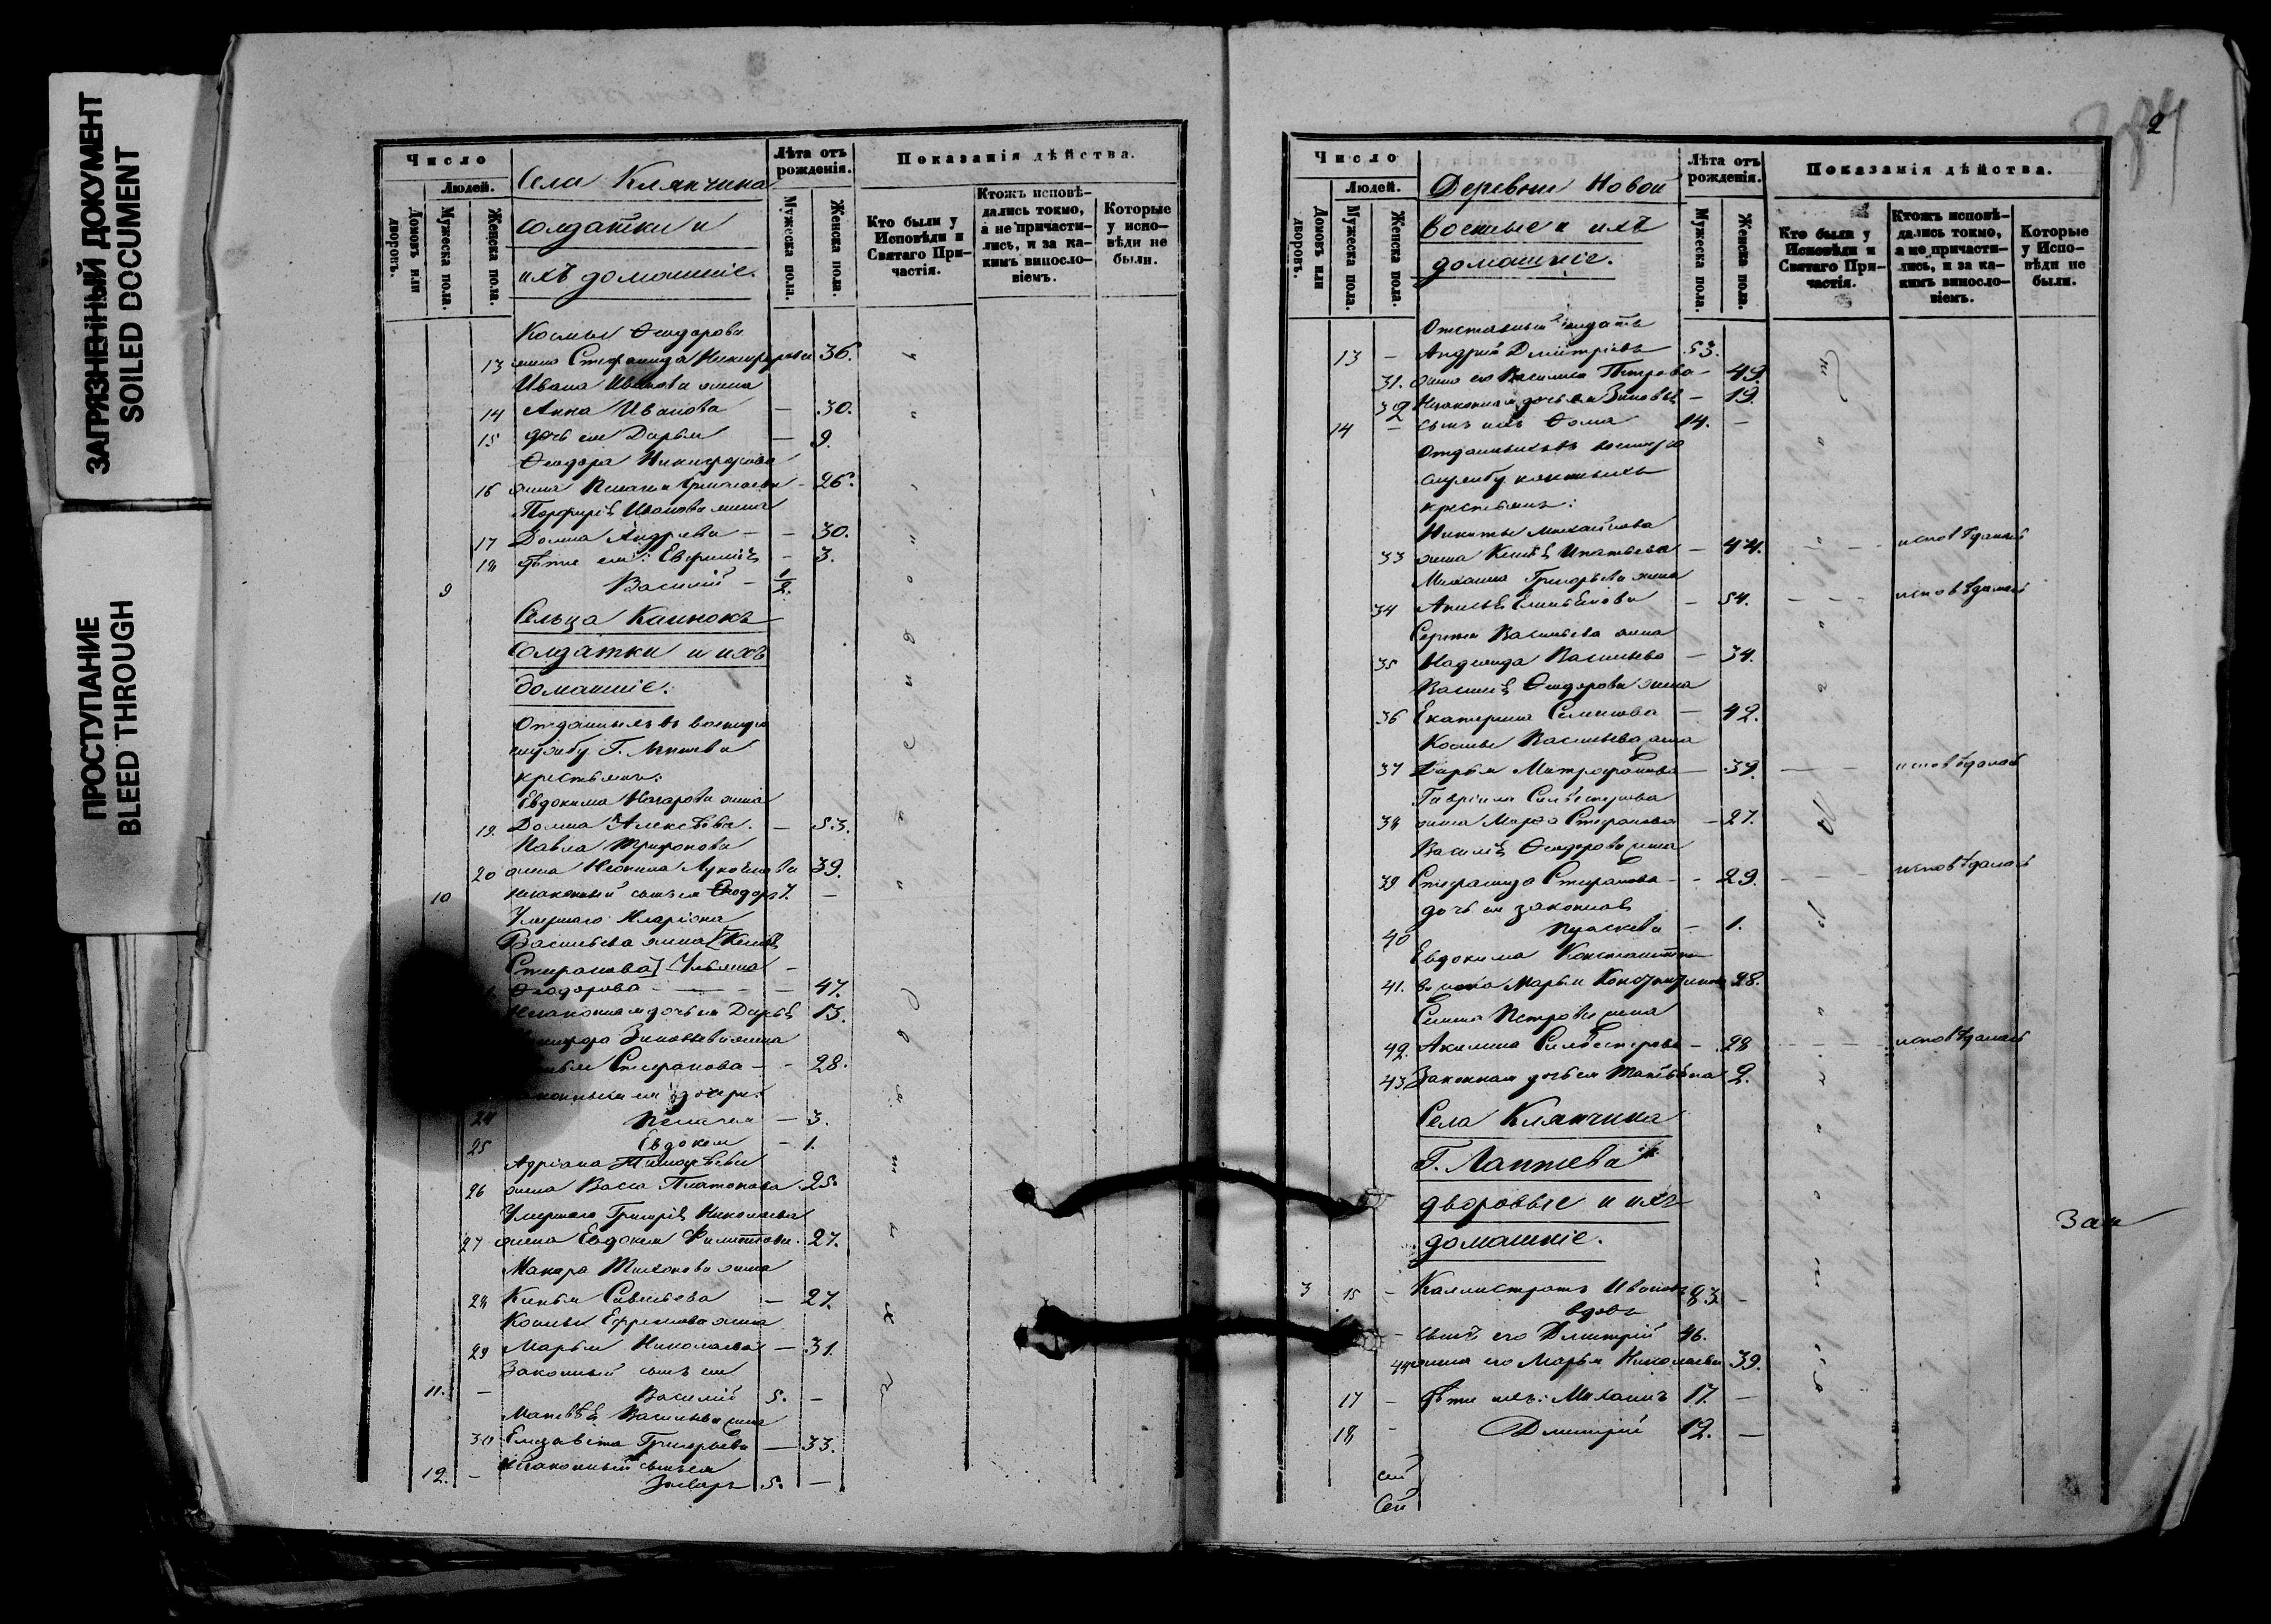 ЗАГРЯЗНЕННЫЙ ДОКУМЕНТ
SOILED DOCUMENT
ПРОСТУПАНИЕ
BLEED THROUGH
Число
Людей.
Домовъ или дворовъ.
Мужеска пола.
Женска пола.
Села Клячина
солдатки и
ихъ домашніе.
Лѣта отъ рожденія.
Мужеска пола.
Женска пола.
Показанія дѣйства.
Кто были у Исповѣди и Святаго Причастія.
Ктожъ исповѣдались токмо, а не причастились, и за какимъ винословіемъ.
Которые у исповѣди не были.
Космы Ѳеодорова
13 жена Стефанида Никифорова 36.
Ивана Иванова жена
14 Анна Иванова — 30.
15 дочь ея Дарья — 9.
Ѳеодора Никифорова
16 жена Пелагея - 26.
Порфирія Иванова жена
17 Домна Андреева — 30.
18 дѣти ея: Евфимія - 3.
9 Василій - 1/2.
Сельца
солдатки и ихъ
домашніе.
Отданныхъ въ военную
службу Г. Лаптева
крестьянъ:
Евдокима Назарова жена
19. Домна Алексѣева. — 53.
Павла Трифонова
20 жена 39.
10 незаконный сынъ ея Ѳеодоръ 7. —
Умершаго Иларіона
Васильева жена [Ксенія
Стефанова] Ульяна -
Ѳеодорова — 47.
Незаконная дочь ея Дарья 13.
Зиновьева жена
Стефанова — 28.
ея дочери:
24 Пелагея — 3.
25 Евдокея - 1.
Адріана Тимофѣева
26 жена Васса Платонова 25.
Умершаго Григорія Николаева
27 жена Евдокея Филиппова. 27.
Макара Тихонова жена
28 Савельева — 27.
Космы Ефремова жена
29 Марья Николаева — 31.
Законный сынъ ея
11. — Василій 5. —
Матвѣя Васильева жена
30 Елизавета Григорьева — 33.
Незаконный сынъ ея
12. — 5. —
2
Число
Людей.
Домовъ или дворовъ.
Мужеска пола.
Женска пола.
Деревни Новой
военные и ихъ
домашніе.
Лѣта отъ рожденія.
Мужеска пола.
Женска пола.
Показанія дѣйства.
Кто были у Исповѣди и Святаго Причастія.
Ктожъ исповѣдались токмо, а не причастились, и за какимъ винословіемъ.
Которые у Исповѣди не были.
Отставный солдатъ
13 — Андрей Дмитріевъ 53.
31. жена его Василиса Петрова — 49.
32 Незаконная дочь ея Зиновья — 19.
14 — сынъ ихъ Ѳома 14. —
Отданныхъ въ военную
службу
крестьянъ:
Никиты Михайлова
33 жена Ксенія Игнатьева — 44. исповѣдалась
Михаила Григорьева жена
34 — 54. — исповѣдалась
Сергея Васильева жена
35 Надежда Васильева — 34.
Василія Ѳеодорова жена
36 Екатерина Семенова — 42.
Космы Васильева жена
37 Дарья Митрофанова — 39. — исповѣдалась
Гавріила Силвестрова
38 жена Марѳа Стефанова — 27.
Василія Ѳеодорова жена
39 Стефанида Стефанова — 29. — исповѣдалась
дочь ея законная
40 Праскева — 1.
Евдокима Константинова
41. жена Марья Константинова 28.
Семена Петрова жена
42. Акилина Силвестрова — 28 — исповѣдалась
43. Законная дочь ея Татьяна 2.
Села Клячина
Г. Лаптева
дворовые и ихъ
домашніе.
3 15 — Каллистратъ Ивановъ 83 —
вдовъ
— сынъ его Дмитрій 46.
44 жена его Марья Николаева 39.
17 — Дѣти ихъ: Михаилъ 17. —
18 - Дмитрій 12. —